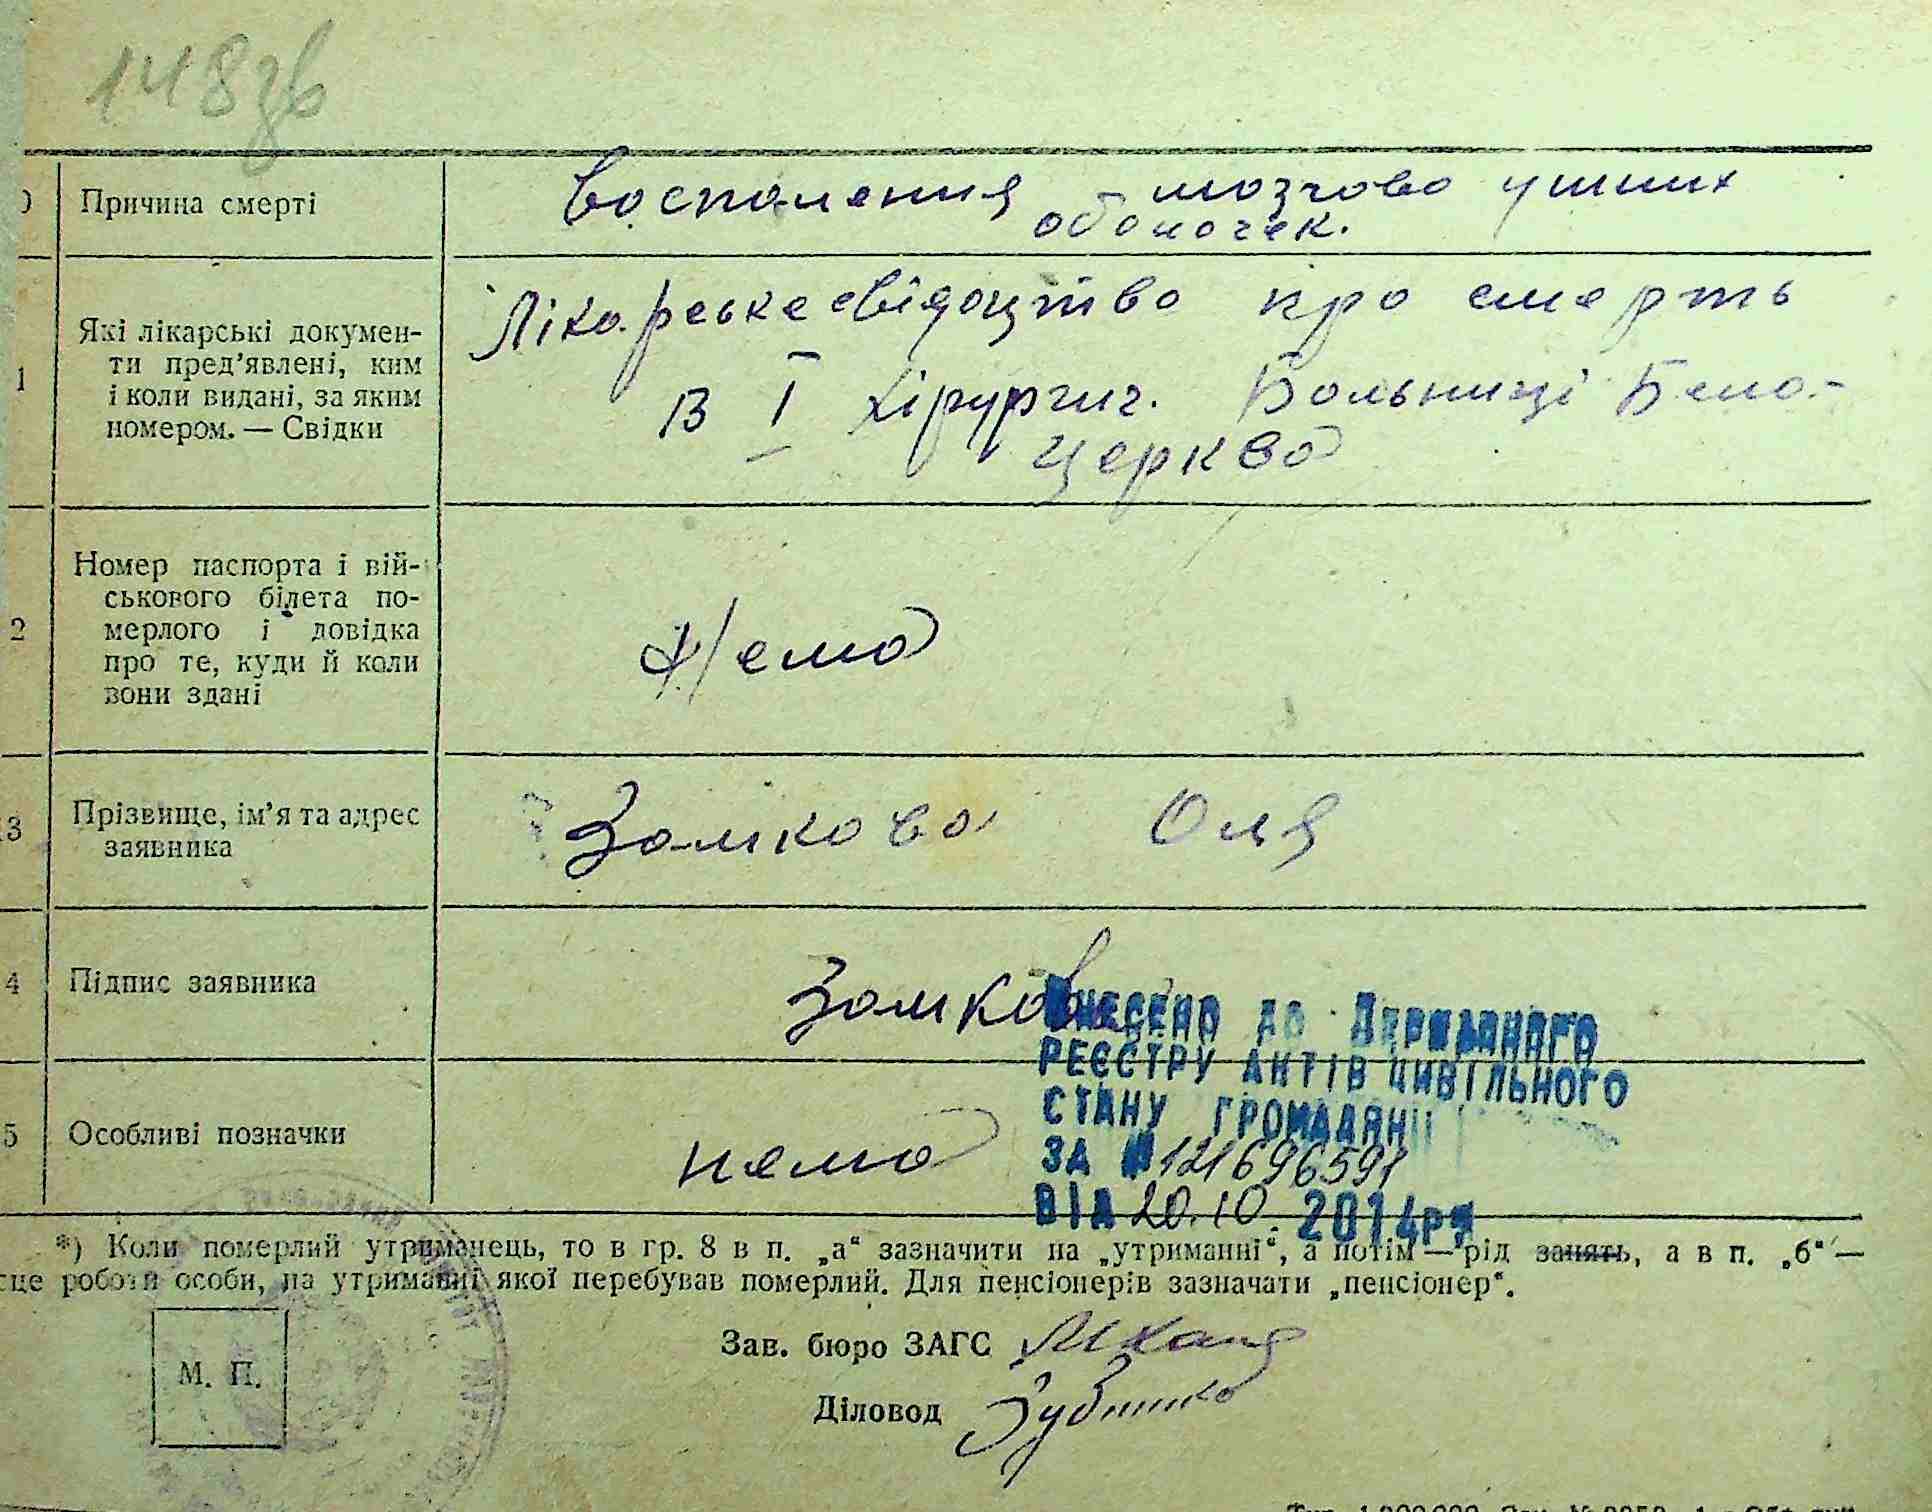 148зв
Причина смерті
Воспаления мозгово ушних
оболочек.
1
Які лікарські докумен-
ти пред’явлені, ким
і коли видані, за яким
номером. — Свідки
Лікарське свідоцтво про смерть
В I хірургич. Больниці Бело-
церква
2
Номер паспорта і вій-
ськового білета по-
мерлого і довідка
про те, куди й коли
вони здані
Нема
3
Прізвище, ім’я та адрес
заявника
Замкова Оля
4
Підпис заявника
Замкова
5
Особливі позначки
нема
ВНЕСЕНО ДО ДЕРЖАВНОГО
РЕЄСТРУ АКТІВ ЦИВІЛЬНОГО
СТАНУ ГРОМАДЯН
ЗА № 121696591
ВІД 20.10.2014р
*) Коли померлий утриманець, то в гр. 8 в п. „а“ зазначити на „утриманні“, а потім — рід занять, а в п. „б“ —
сце роботи особи, на утриманні якої перебував померлий. Для пенсіонерів зазначати „пенсіонер“.
М. П.
Зав. бюро ЗАГС
Діловод